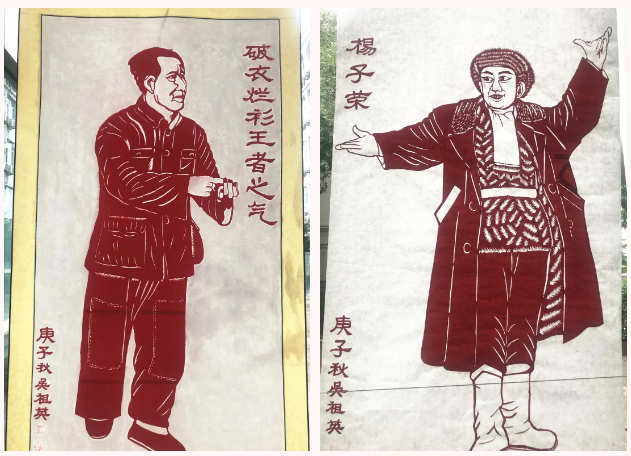 破衣烂衫王者之气
庚子秋吳祖英
楊子荣
庚子秋吳祖英